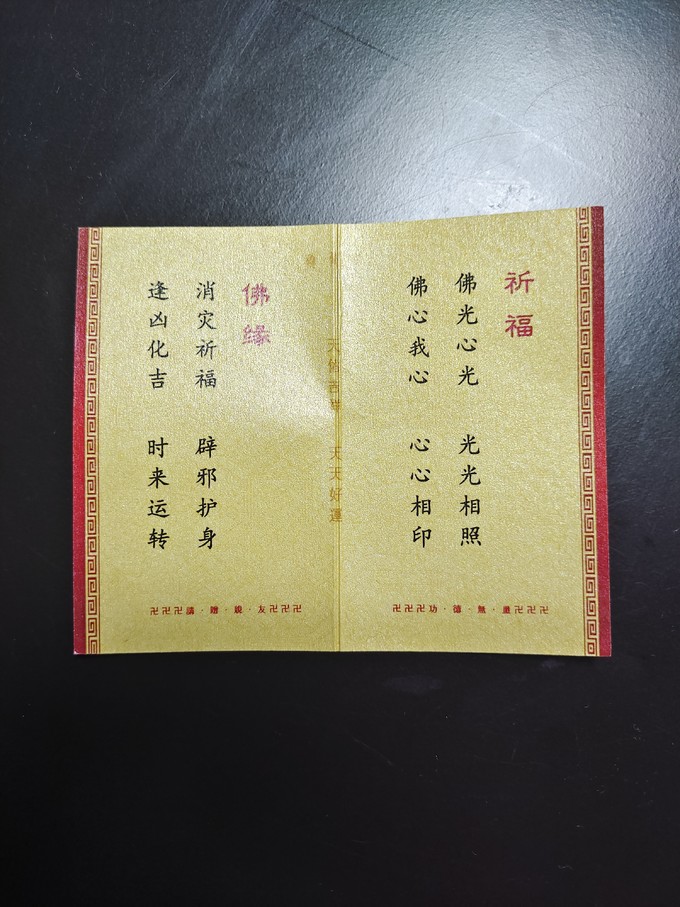 祈福
佛光心光 光光相照
佛心我心 心心相印
卍卍卍功·德·無·量卍卍卍
天天好運
佛缘
消灾祈福 辟邪护身
逢凶化吉 时来运转
卍卍卍請·贈·親·友卍卍卍